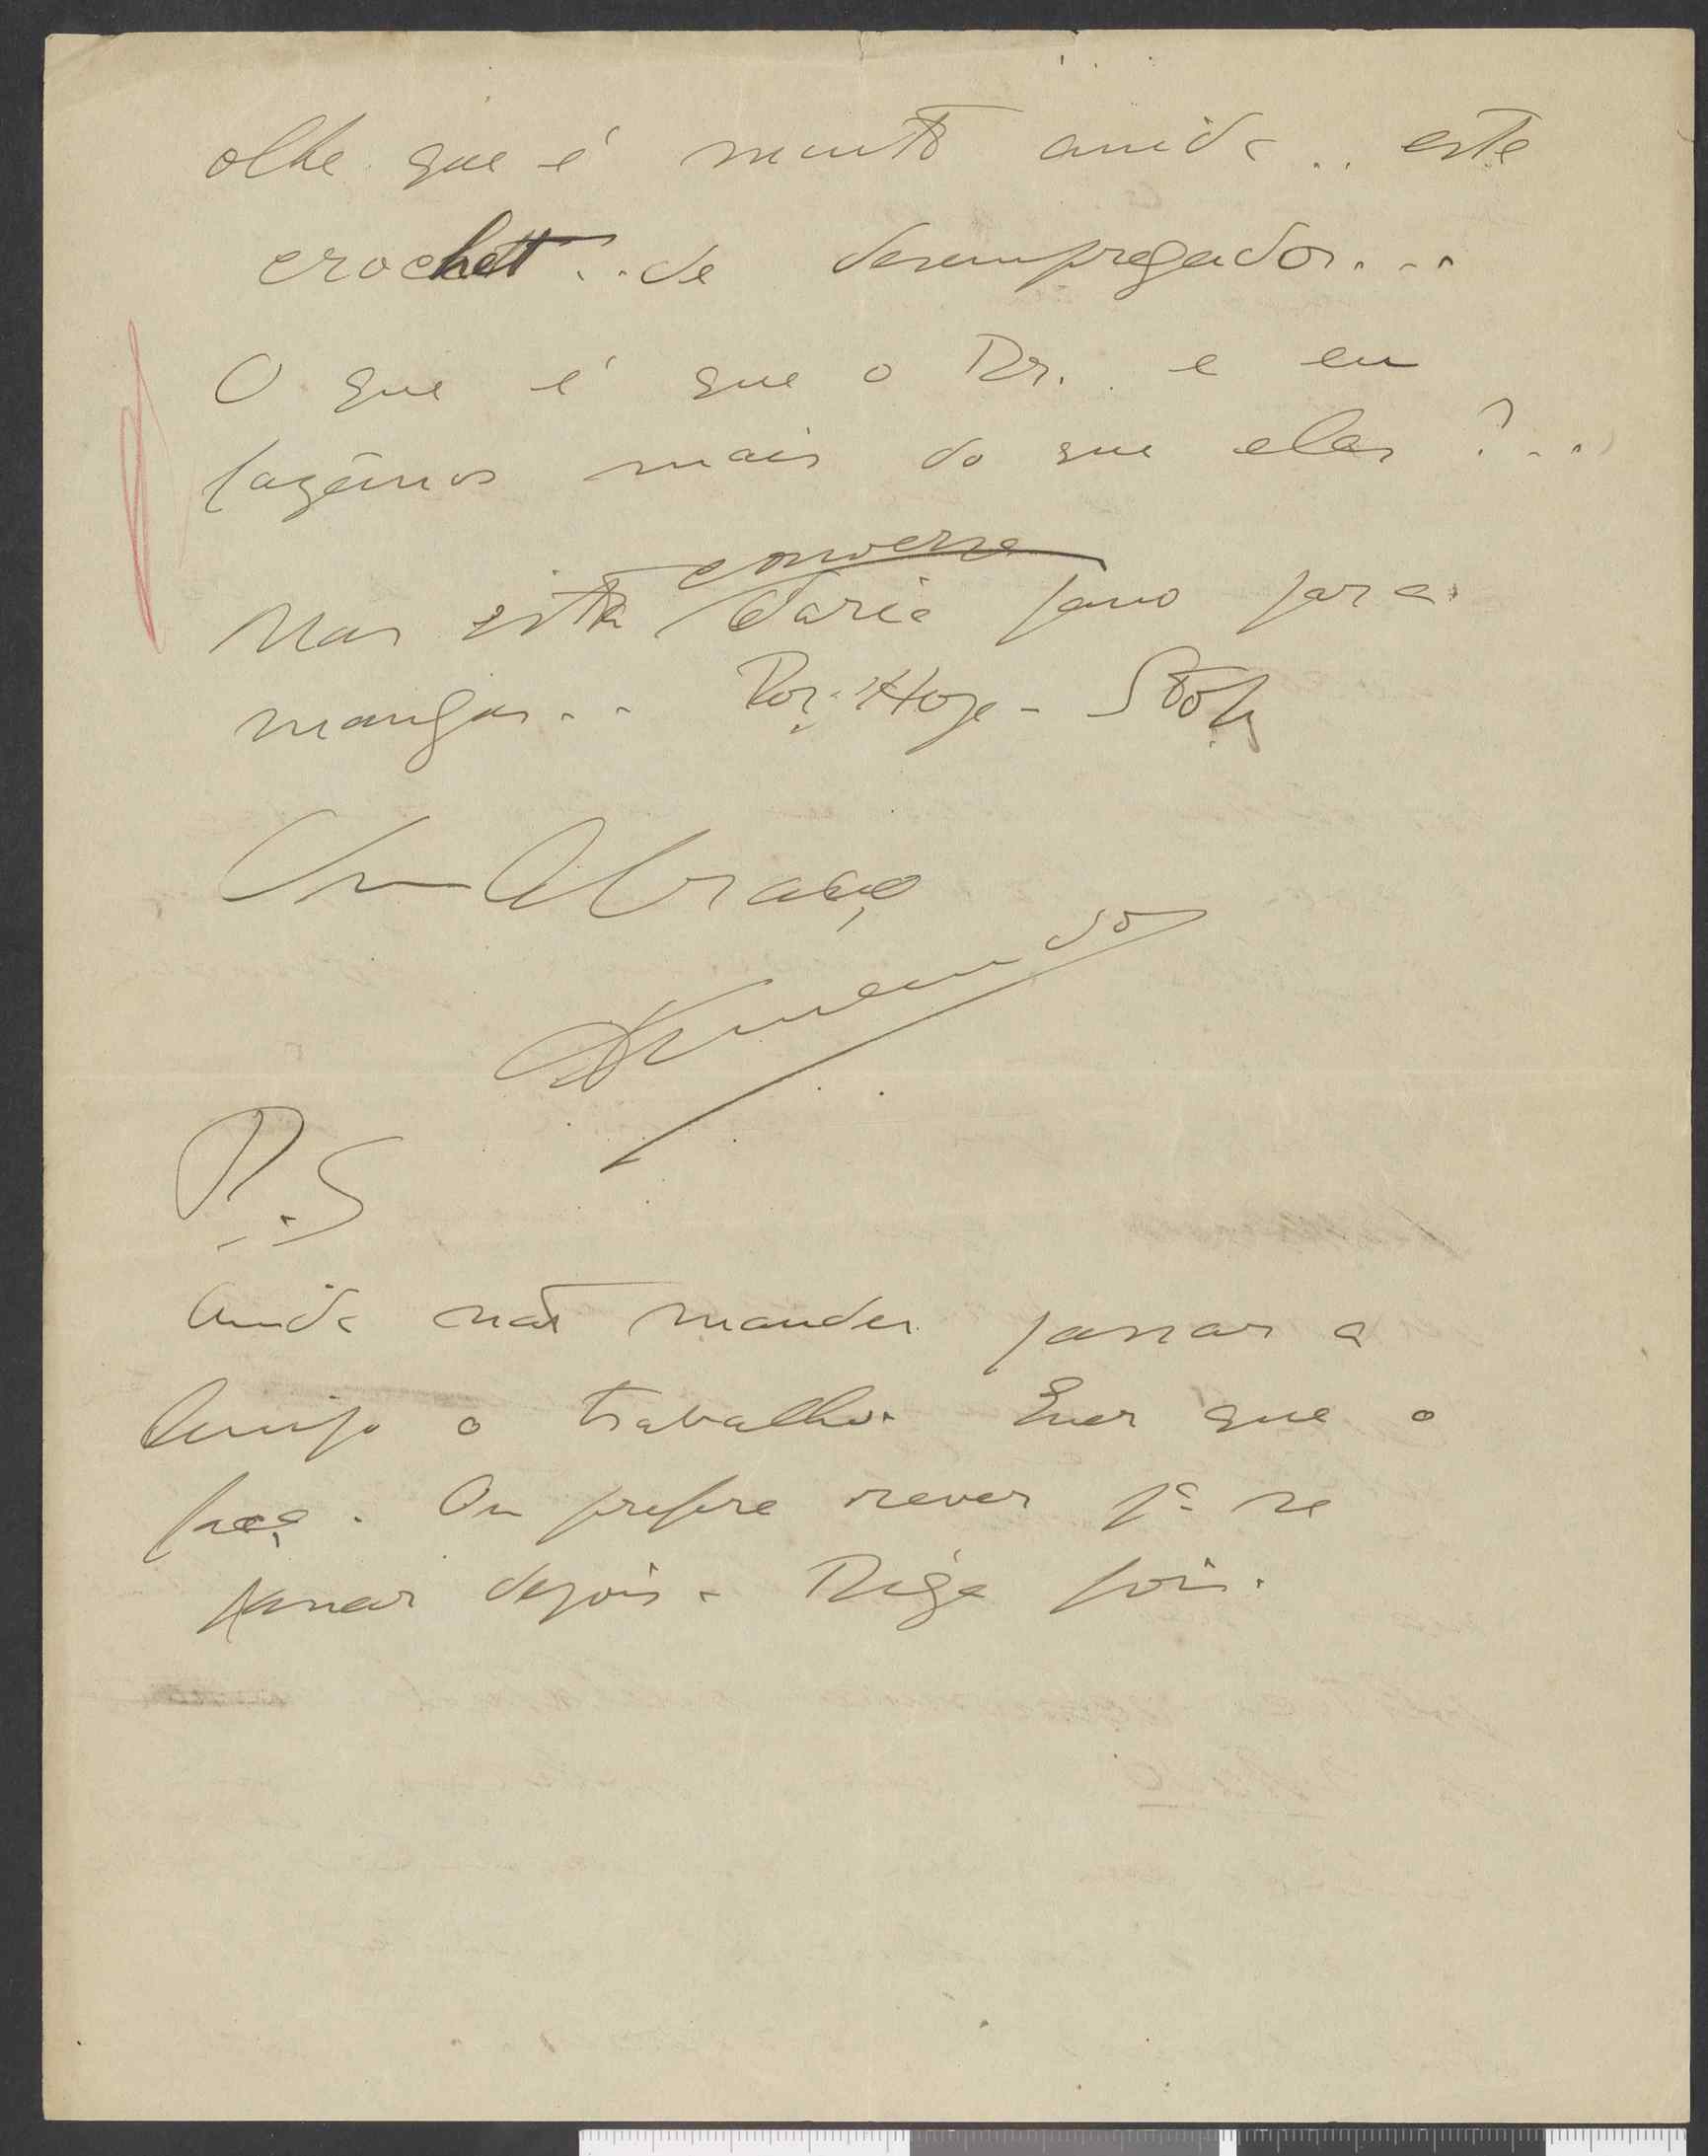 olhe que é muito ainda.. este
crochett... de desempregados...
O que é que o Dr. e eu
fazêmos mais do que eles?...
Mas esta conversa daria pano para
mangas.. Por Hoje - Stop
Um Abraço
Armando
P.S
Ainda não mandei passar a
limpo o trabalho. Quer que o
faça. Ou prefere rever pª se
passar depois. Diga pois.